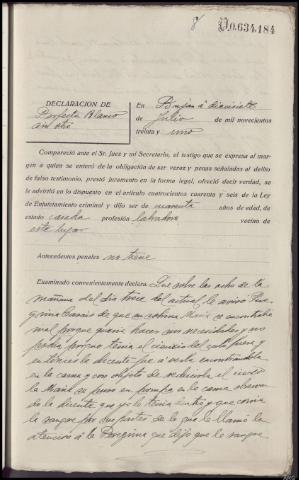 8
D.0.634,184
DECLARACION DE
Perfecta Blanco
En Bujan á diecisiete
de Julio de mil novecientos
treinta y uno
Compareció ante el Sr. Juez y mi Secretario, el testigo que se expresa al mar-
gen a quien se enteró de la obligación de ser veraz y penas señaladas al delito
de falso testimonio, prestó juramento en forma legal, ofreció decir verdad, se
le advirtió en lo dispuesto en el artículo cuatrocientos cuarenta y seis de la Ley
de Enjuiciamiento criminal y dijo ser de años de edad, de
estado casada profesión labradora vecina de
este lugar
Antecedentes penales no tiene
Examinado convenientemente declara Que sobre las ocho de la
mañana del dia trece del actual, le avisó Pere-
grina de que su sobrina Maria se encontraba
mal porque queria hacer sus necesidades y no
podia porque tenia el cuerpo fuera y
entonces la decente fue á verla encontrandola
en la cama y con objeto de
la Maria se puso en la cama
la decente que ya lo tenia dentro y que corria
la sangre por sus partes de lo que le llamó la
atención á la Peregrina que dijo que la sangre